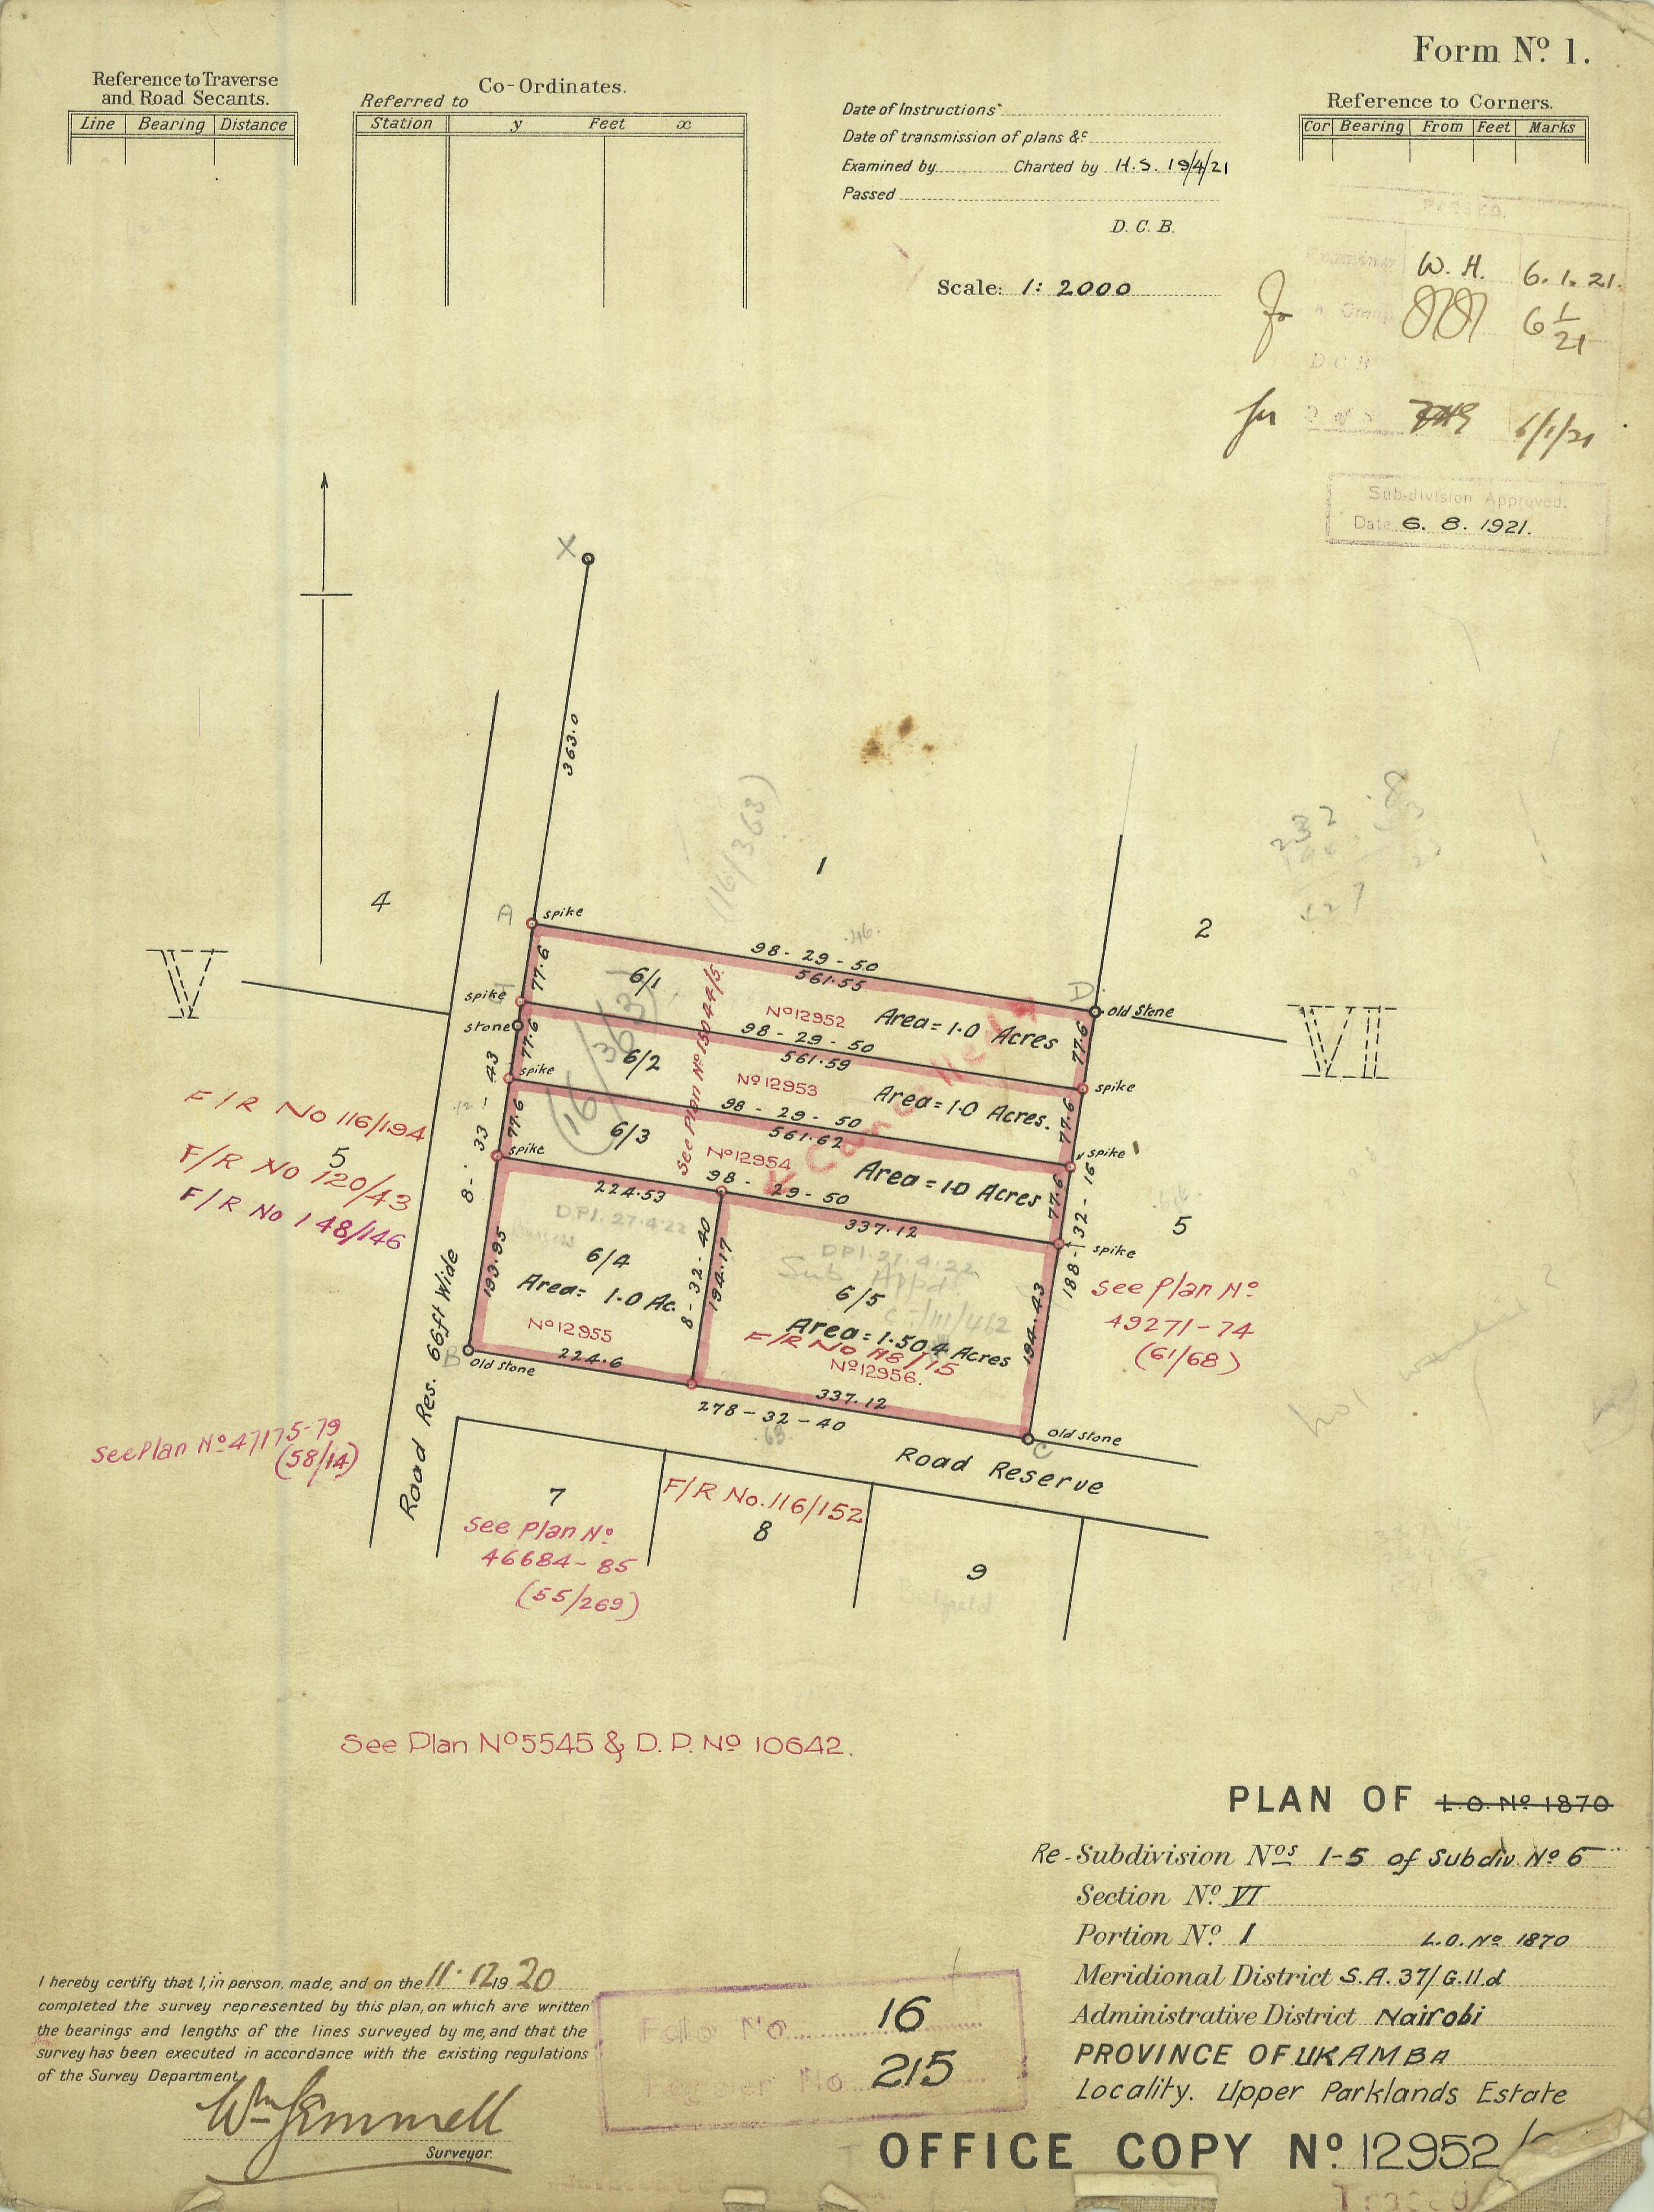 Form Nº 1.
Reference to Traverse
and Road Secants.
Line Bearing Distance
Co-Ordinates.
Referred to
Station y Feet x
Date of Instructions
Date of transmission of plans &c
Examined by Charted by H.S. 19/4/21
Passed
D. C. B.
Scale: 1: 2000
Reference to Corners.
Cor Bearing From Feet Marks
Passed.
W. H. 6. 1. 21.
for 6 1/21
D.C.B
for 6/1/21
Sub-division Approved.
Date 6. 8. 1921.
X
363.0
(16/363)
1
4
2
V
VII
A spike
98 - 29 - 50
561.55
D Old Stone
77.6
6/1
Nº 12952 Area = 1.0 Acres
77.6
spike
stone
98 - 29 - 50
561.59
spike
77.6
6/2
(16/363)
See Plan Nº 15044/5
Nº 12953 Area = 1.0 Acres.
77.6
Cancelled
spike
98 - 29 - 50
561.62
spike
77.6
6/3
Nº 12954 Area = 1.0 Acres
77.6
8 - 33 - 43
188 - 32 - 16
spike
98 - 29 - 50
224.53
337.12
spike
F/R No 116/194
5
F/R No 120/43
F/R No 148/146
5
DP1. 27.4.22
6/4
Area = 1.0 Ac.
Nº 12955
193.95
8 - 32 - 40
194.17
DP1. 27.4.22
Sub. Appd.
6/5
Area = 1.504 Acres
F/R No 118/15
Nº 12956.
194.43
See Plan Nº
49271-74
(61/68)
B Old Stone
224.6
337.12
278 - 32 - 40
C Old Stone
Road Res. 66ft Wide
Road Reserve
See Plan Nº 47175-79
(58/14)
7
See Plan Nº
46684-85
(55/269)
F/R No. 116/152
8
9
See Plan Nº 5545 & D.P. Nº 10642.
PLAN OF L.O. Nº 1870
Re-Subdivision Nos 1-5 of Subdiv. Nº 6
Section Nº VI
Portion Nº 1 L.O. Nº 1870
Meridional District S.A. 37/G.II.d
Administrative District Nairobi
PROVINCE OF UKAMBA
Locality. Upper Parklands Estate
OFFICE COPY Nº 12952/
Traced
I hereby certify that I, in person, made, and on the 11.12 19 20
completed the survey represented by this plan, on which are written
the bearings and lengths of the lines surveyed by me, and that the
survey has been executed in accordance with the existing regulations
of the Survey Department.
Wm Gemmell
Surveyor.
Folio No. 16
Register No 215